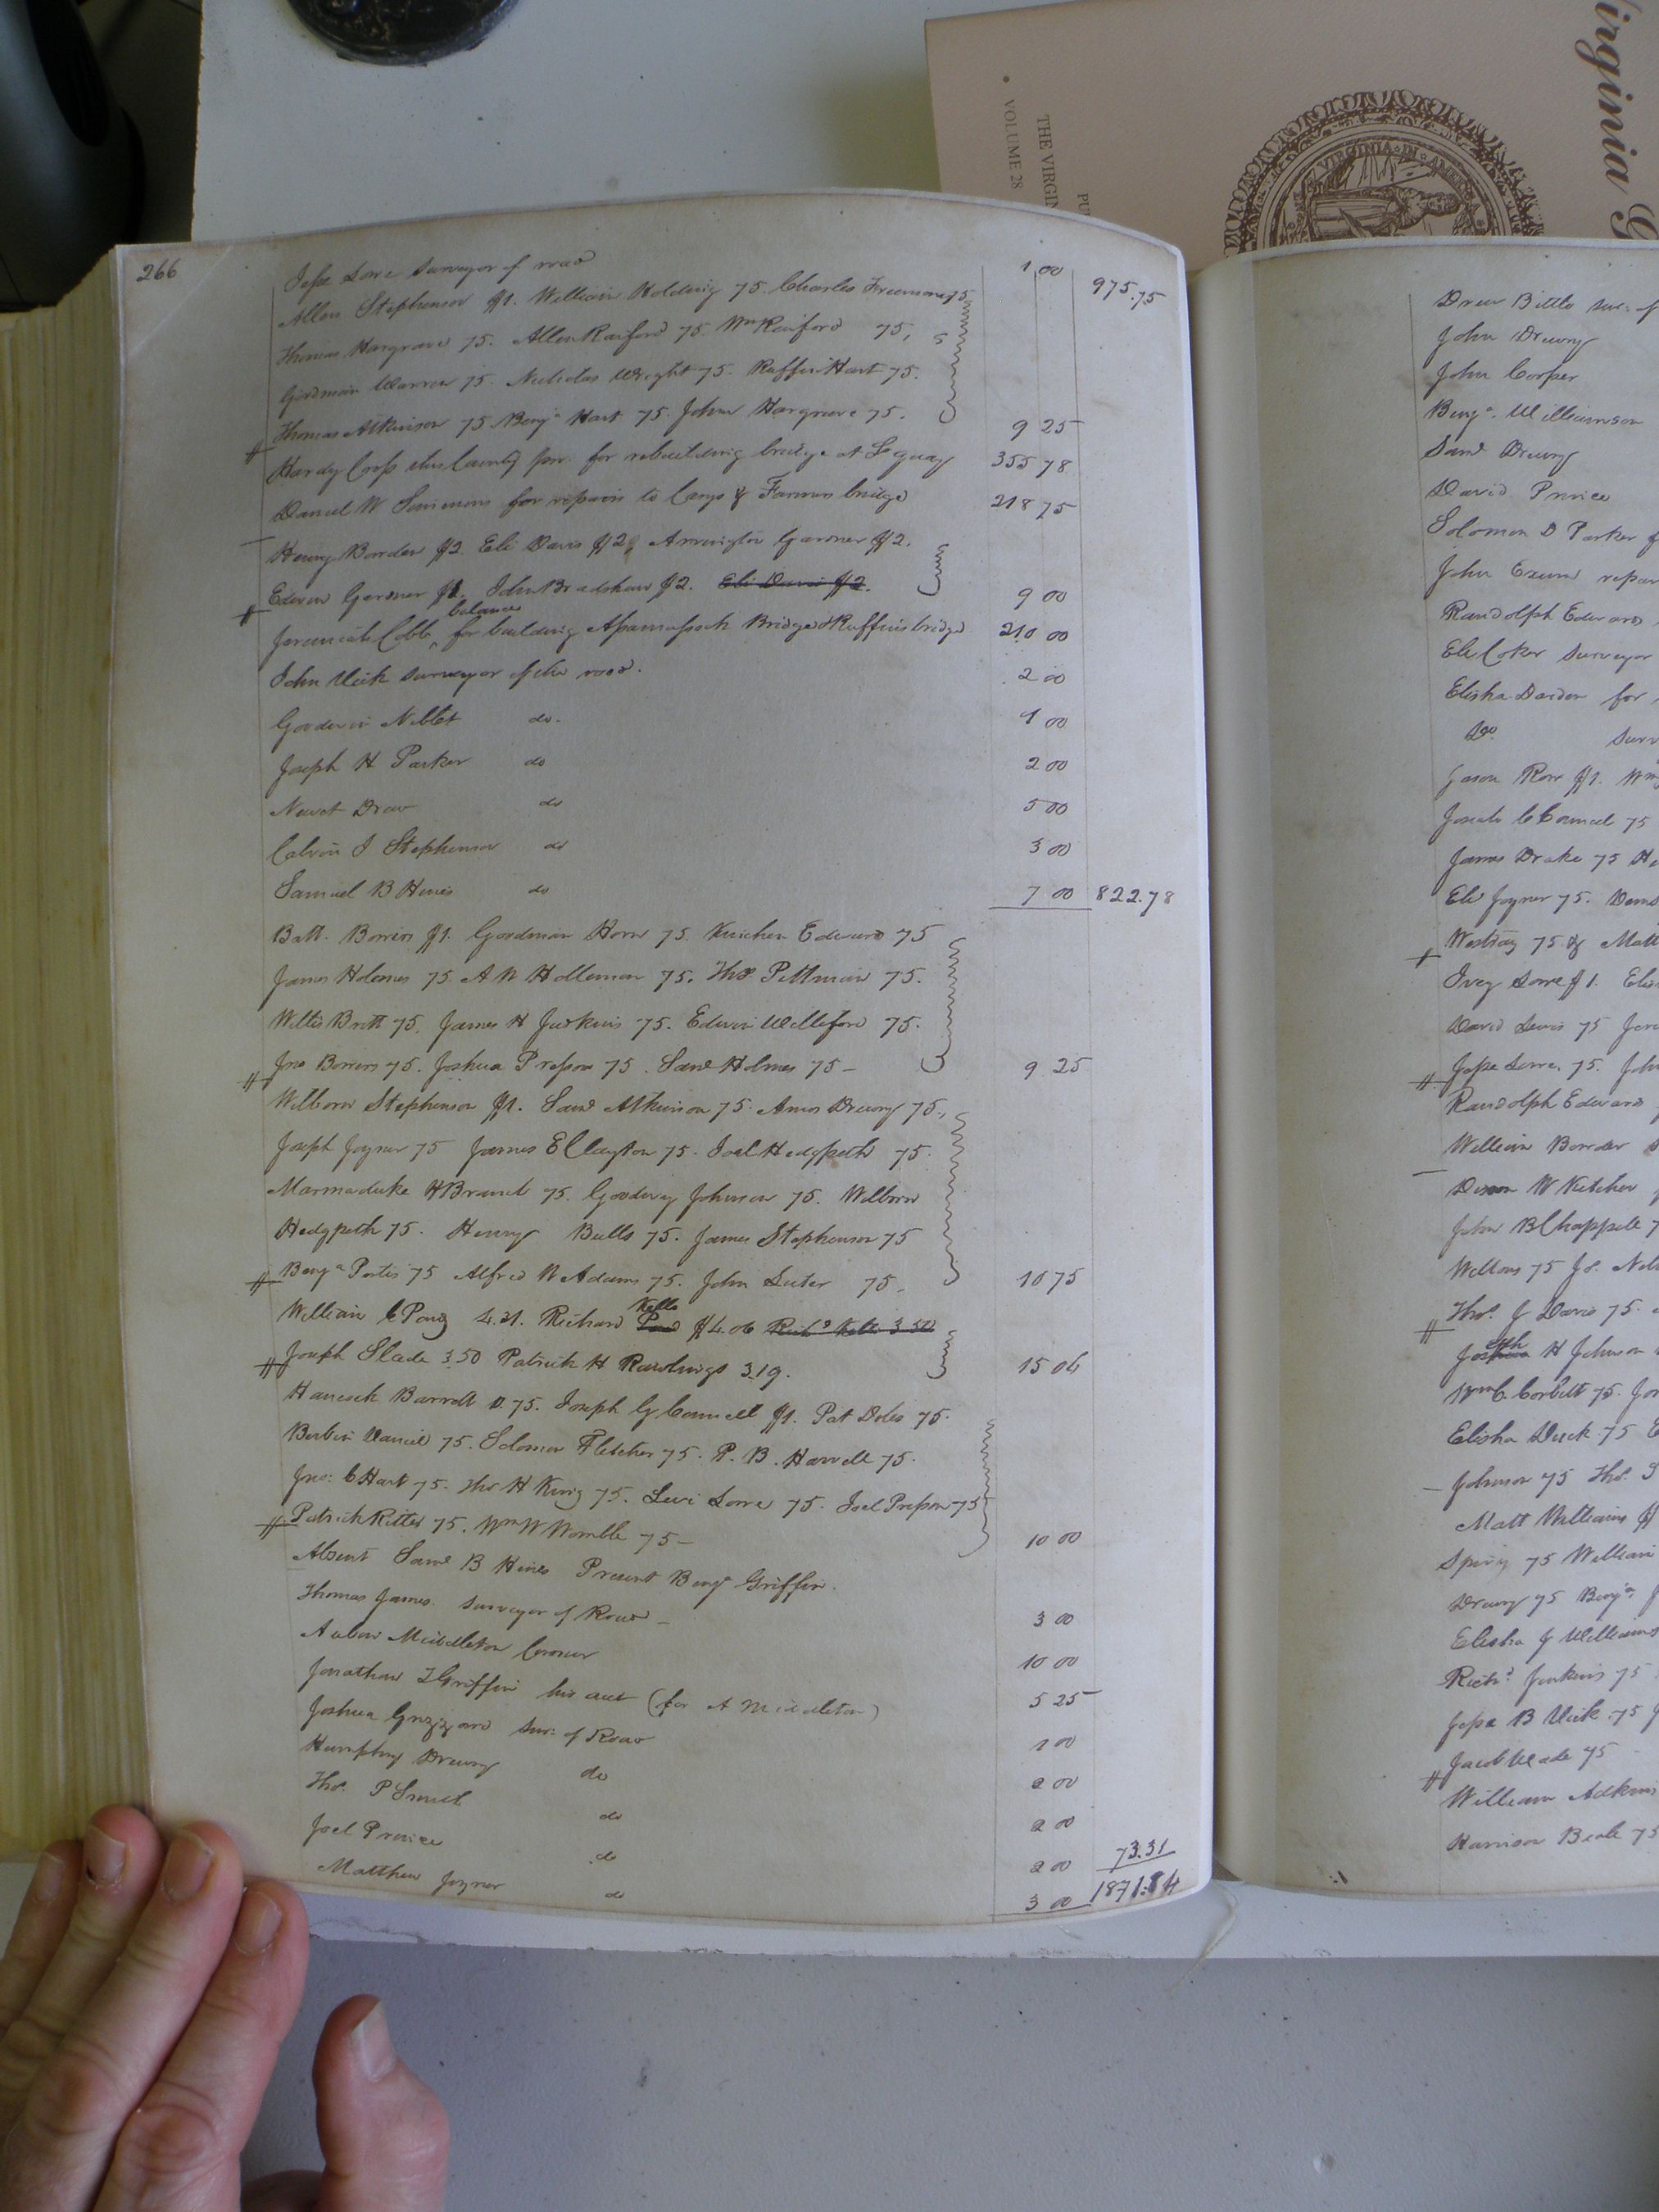 Virginia
THE VIRGIN
VOLUME 28
VIRGINIA IN AMER
266
Jesse Lane surveyor of road 1 00 975.75
Allen Stephenson $1. William Holding 75. Charles Freeman 75
Thomas Hargrave 75. Allen Raiford 75. Wm Raiford 75,
Goodman Warren 75. Nicholas Wright 75. Ruffin Hart 75.
Thomas Atkinson 75 Benja Hart 75. John Hargrave 75. 9 25
Hardy Cross this County pro. for rebuilding bridge at So quay 355 78
Daniel W Simmons for repairs to Carys & Farmers bridge 218 75
Henry Borden $2 Eli Davis $2 Arrington Gardner $2.
Edwin Gardner $1. John Bradshaw $2. Eli Davis $2. 9 00
Jeremiah Cobb, balance for building Apamassock Bridge & Ruffins bridge 210 00
John Vick surveyor of the road. 2 00
Gooderin Niblet do. 1 00
Joseph H Parker do 2 00
Newit Drew do 5 00
Calvin J Stephenson do 3 00
Samuel B Hines do 7 00 822.78
Batt. Barrins $1. Goodman Horn 75. Kinchen Edwards 75
James Holmes 75. A W Holleman 75. Thos Pittman 75.
Willis Britt 75. James H Judkins 75. Edwin Welleford 75.
Jno Barnes 75. Joshua Presson 75. Saml Holmes 75 - 9 25
Wilborn Stephenson $1. Saml Atkinson 75. Amos Drewry 75,
Joseph Joyner 75 James E Clayton 75. Joel Hedgpeth 75.
Marmaduke H Branch 75. Goodwy Johnson 75. Wilborn
Hedgpeth 75. Henry Bulls 75. James Stephenson 75
Benja Portis 75 Alfred W Adams 75. John Luter 75, 10 75
William C Pond 4.31. Richard Pond Kello $4.06 Richd Kello 3.50
Joseph Slade 3.50 Patrick H Rawlings 3.19. 15 06
Hancock Barrett 75. Joseph G Council $1. Pat Doles 75.
Berbin Daniel 75. Solomon Fletcher 75. P. B. Harrell 75.
Jno: C Hart 75. Thos H King 75. Levi Lane 75. Joel Presson 75
Patrick Ritter 75. Wm W Womble 75 - 10 00
Absent Saml B Hines Present Benja Griffin.
Thomas James. surveyor of Road - 3 00
Anson Middleton Coroner 10 00
Jonathan T Griffin his acct (for A Middleton) 5 25
Joshua Grizzard sur: of Road 1 00
Humphry Drewry do 2 00
Thos. P Smith do 2 00
Joel Prince do 2 00 73.31
Matthew Joyner do 3 00 1871.84
Drew Bittle sur. of
John Drewry
John Cooper
Benja. Williamson
Saml Drewry
David Prince
Solomon D Parker
John Exum repair
Randolph Edwards
Eli Coker surveyor
Elisha Darden for
Do surv
Jason Rose $1. Wm
Josiah C Council 75
James Drake 75 H
Eli Joyner 75. Dems
Westray 75 & Matt
Ivey Lane $1. Elis
David Lewis 75
Jesse Lane. 75. John
Randolph Edwards
William Borden
W Kitchen
John B Chappell 7
Wellons 75
Thos. J Davis 75.
Joseph H Johnson
Wm C. Corbitt 75.
Elisha Duck 75 E
Johnson 75 Thos.
Matt Williams $
Spivy 75 William
Drewry 75 Benja
Elisha J Williams
Richd Jenkins 75
Jesse B Vick 75
Jacob Wade 75
William Adkins
Harrison Beale 75